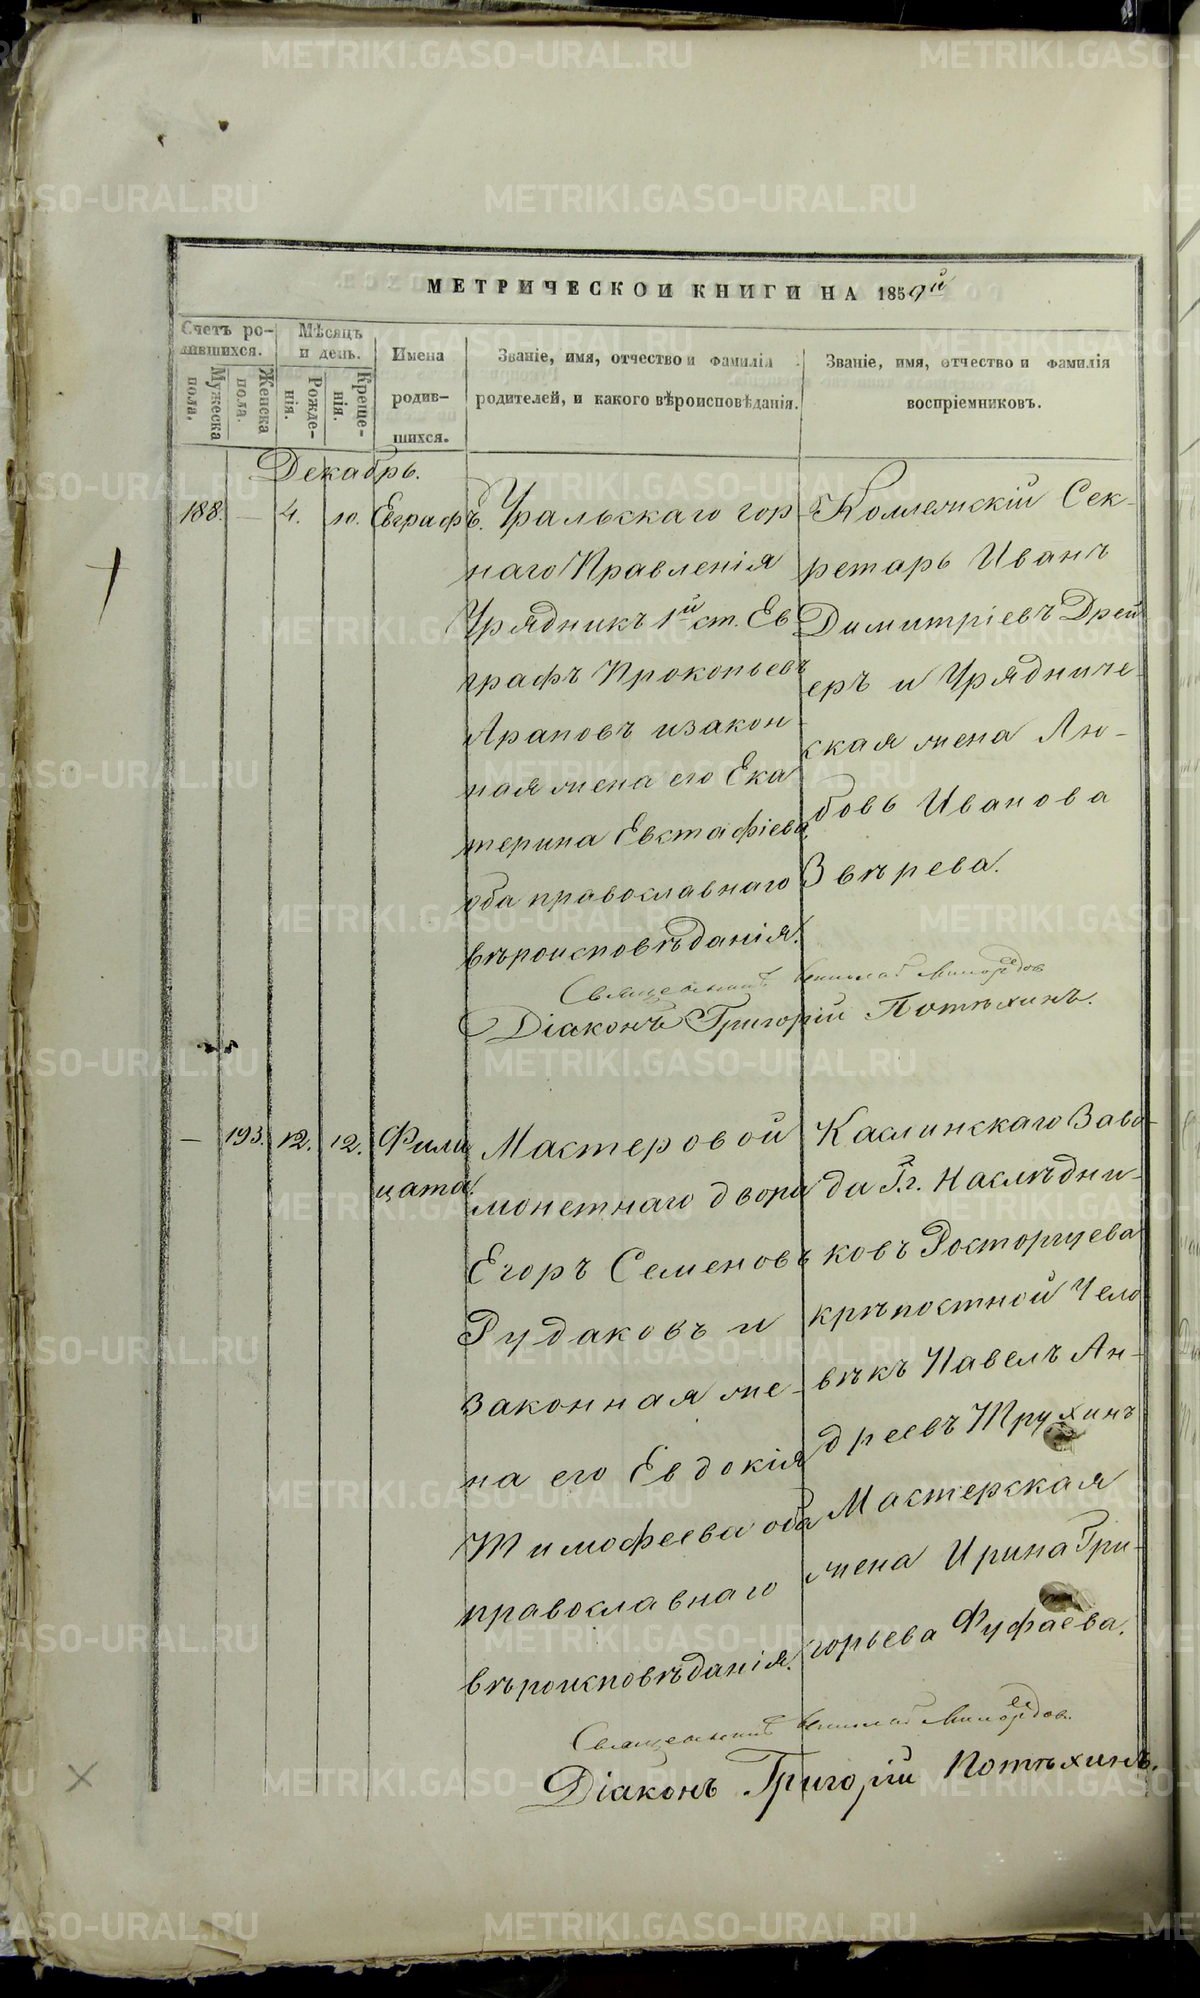 МЕТРИЧЕСКОЙ КНИГИ НА 1859й
Счетъ ро-
дившихся.
Мужеска
пола.
Женска
пола.
Мѣсяцъ
и день.
Рожде-
нія.
Креще-
нія.
Имена
родив-
шихся.
Званіе, имя, отчество и фамилія
родителей, и какого вѣроисповѣданія.
Званіе, имя, отчество и фамилія
воспріемниковъ.
Декабрь.
188. — 4. 10. Евграфъ.
Уральскаго гор-
наго Правленія
Урядникъ 1й ст. Ев
графъ Прокопьевъ
Араповъ и закон-
ная жена его Ека
терина Евстафіева,
оба православнаго
вѣроисповѣданія.
Коллежскій Сек-
ретарь Иванъ
Димитріевъ Дрей
еръ и Уряднище-
ская жена Лю-
бовь Иванова
Звѣрева.
Священникъ Николай
Діаконъ Григорій Потѣхинъ.
— 193. 12. 12. Фили
цата.
Мастеровой
монетнаго двора
Егоръ Семеновъ
Рудаковъ и
законная же-
на его Евдокія
Тимофеева оба
православнаго
вѣроисповѣданія.
Каслинскаго Заво-
да Г.г. Наслѣдни-
ковъ Росторгуева
крѣпостной Чело
вѣкъ Павелъ Ан-
дреевъ Трухинъ
Мастерская
жена Ирина Гри-
горьева Фуфаева.
Священникъ Николай
Діаконъ Григорій Потѣхинъ.
METRIKI.GASO-URAL.RU